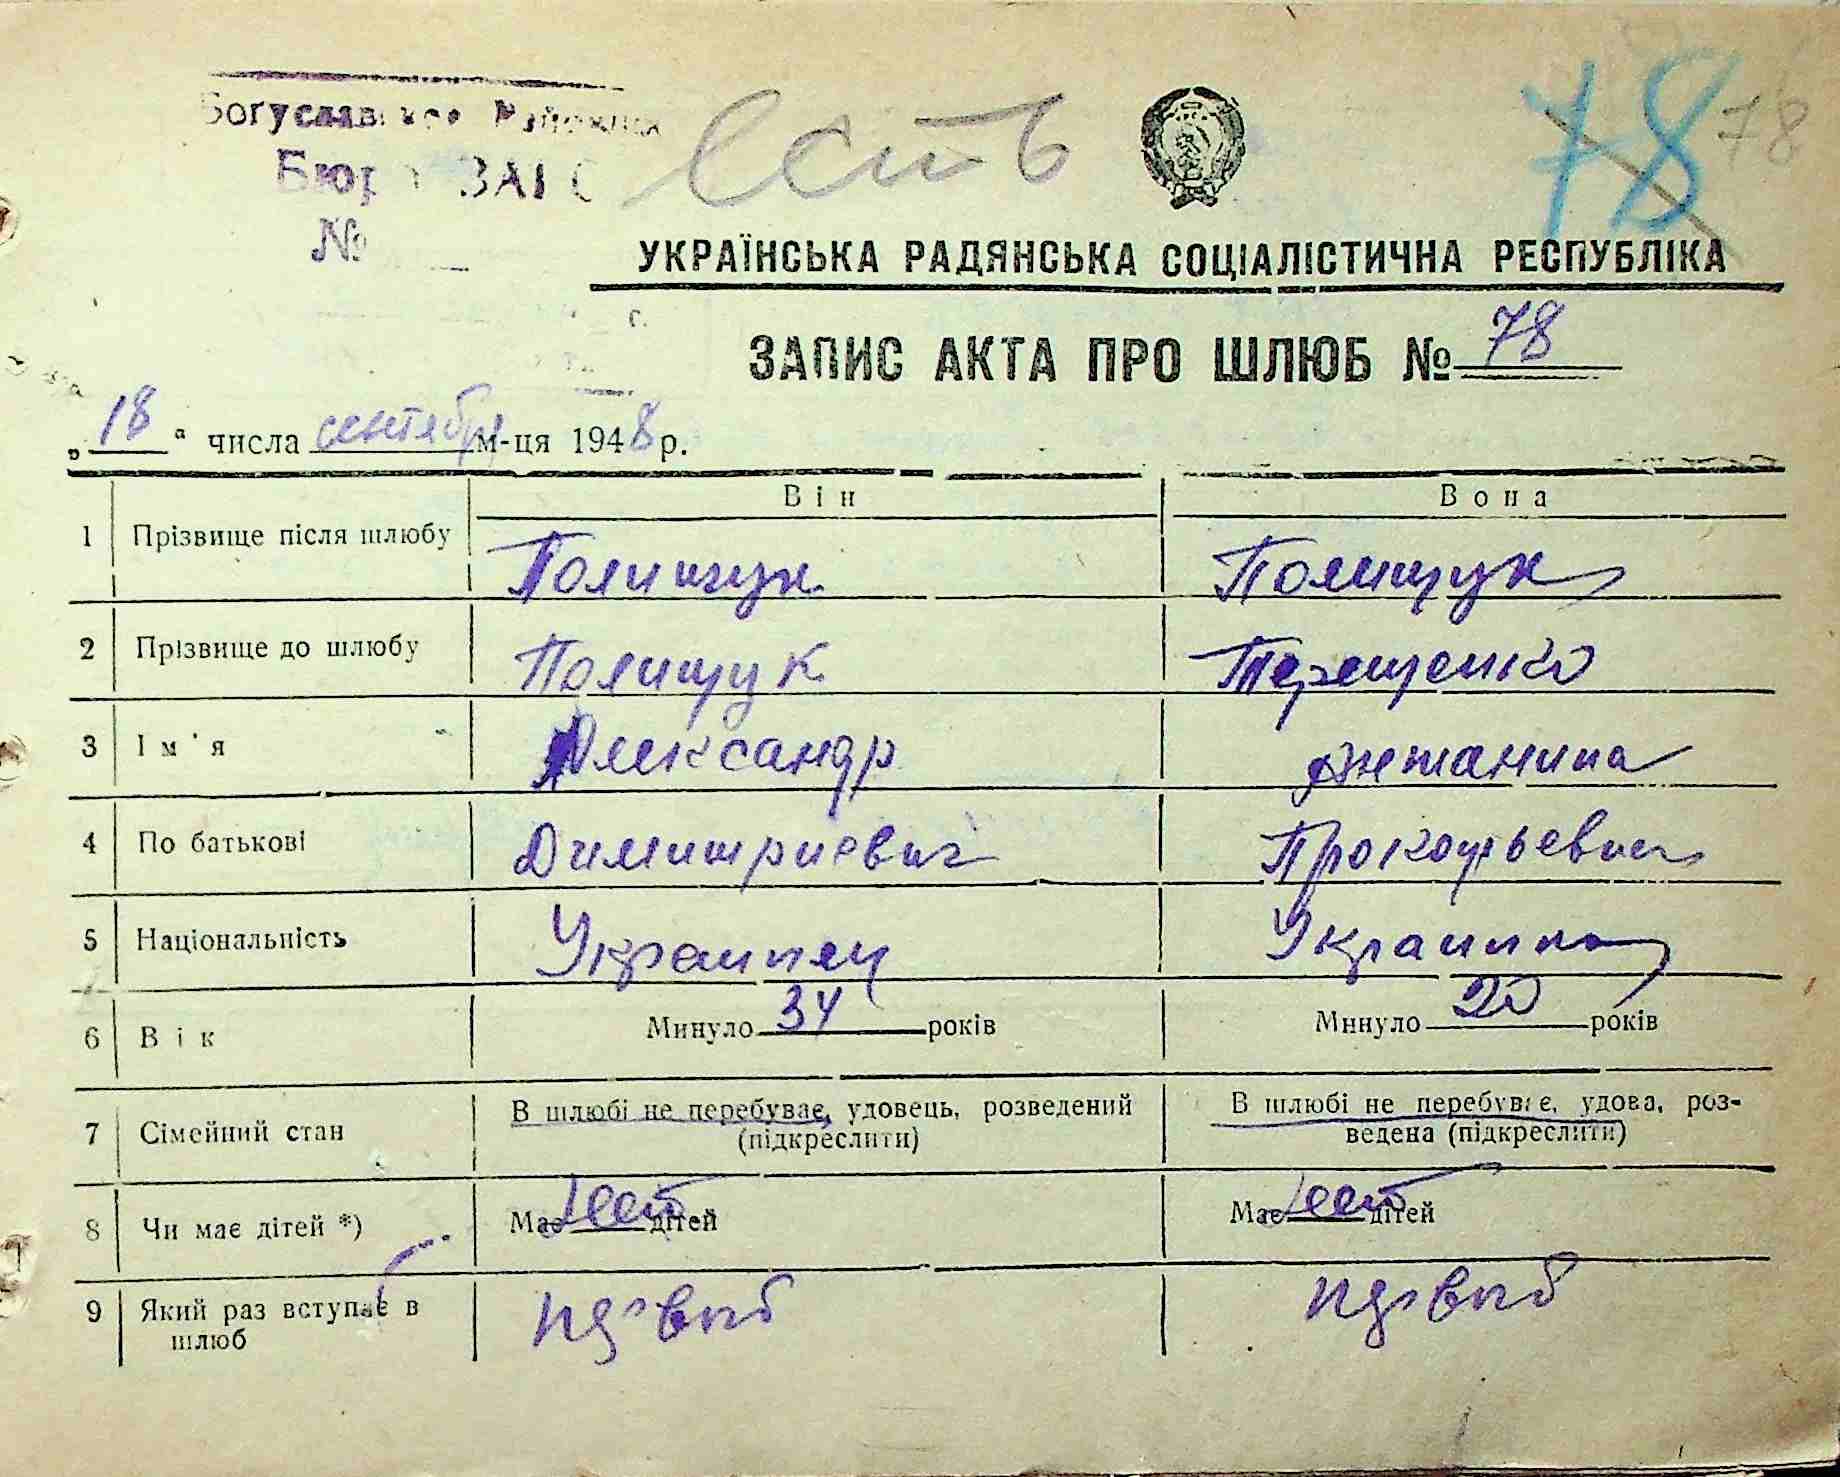 есть
78 78
Бюро ЗАГС
№
УКРАЇНСЬКА РАДЯНСЬКА СОЦІАЛІСТИЧНА РЕСПУБЛІКА
ЗАПИС АКТА ПРО ШЛЮБ № 78
„18“ числа сентября м-ця 1948 р.
Він Вона
1 Прізвище після шлюбу Полищук Полищук
2 Прізвище до шлюбу Полищук Терещенко
3 Ім'я Александр
4 По батькові Димитриевич Прокофьевна
5 Національність Украинец Украинка
6 Вік Минуло 34 років Минуло 20 років
7 Сімейний стан В шлюбі не перебуває, удовець, розведений (підкреслити) В шлюбі не перебуває, удова, роз-
ведена (підкреслити)
8 Чи має дітей *) Має нет дітей Має нет дітей
9 Який раз вступає в первый первый
шлюб